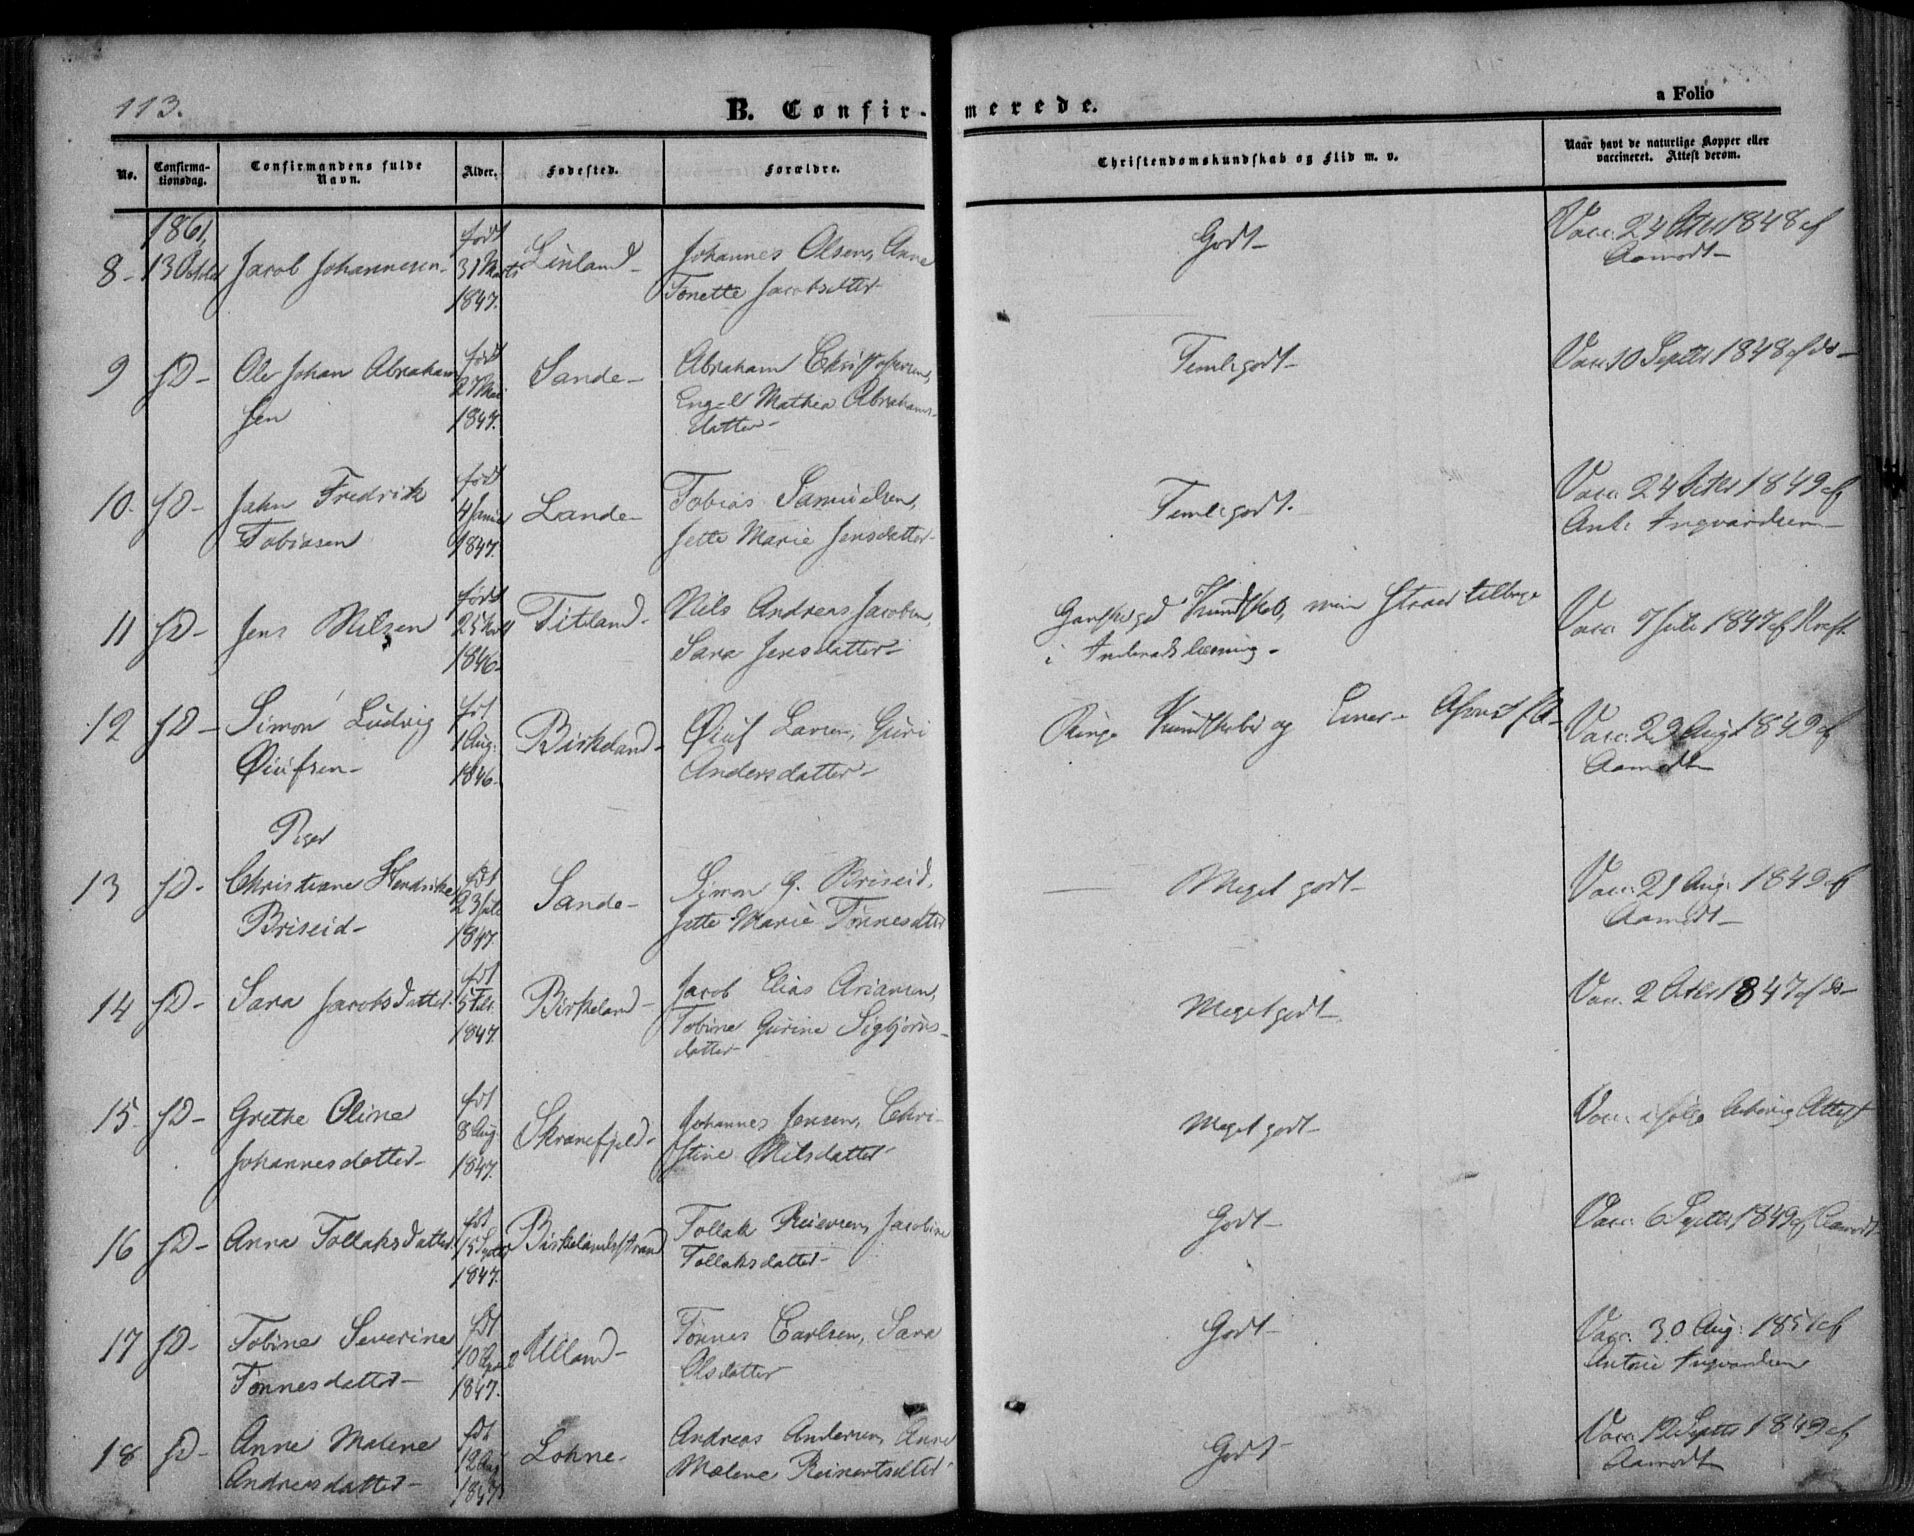 113.
B. Confir-
merede.
a Folio
No.
Confirma-
tionsdag.
Confirmandens fulde
Navn.
Alder.
Fødested.
Forældre.
Christendomskundskab og Flid m. v.
Naar havt de naturlige Kopper eller
vaccineret. Attest derom.
1861,
8 - 13 Jacob Johannesen - født 31 Marts 1847. Linland - Johannes Olsen, Anne
Tonette Jacobsdtter
Godt -
Vacc. 24 1848 af
Aamodt -
9 D - Ole Johan Abraham
sen født 27 Mai 1847. Sande - Abraham Christophersen,
Engel Mathea Abrahams-
datter -
Temligodt -
Vacc. 10 Septbr 1848 af do -
10. D - John Fredrik
Tobiasen født 4 1847. Lande - Tobias Samuelsen,
Jette Marie Jensdatter -
Temligodt.
Vacc. 24 1849 af
Ant: Ingvardsen -
11 D - Jens Nilsen født 25 1846 - Titland - Nils Andreas Jacobsen,
Sara Jensdatter -
Kundskab, men staaer tilbage
i Indenadslæsning -
Vacc 7 Juli 1847 af Kraft
12 D - Simon Ludvig
Øiufsen - føt 1 Aug. 1846. Birkeland - Øiuf Larsen, Guri
Andersdatter -
Ringe Kundskaber og
Vacc. 23 Aug. 1849 af
Aamodt
Piger
13 D - Christiane Hendrike
Briseid - fdt 23 Juli 1847. Sande - Simon G. Briseid,
Jette Marie Tønnesdtter
Meget godt -
Vacc. 21 Aug. 1849 af
Aamodt -
14 D - Sara Jacobsdatter. fdt 5 1847. Birkeland - Jacob Elias Arians­en,
Tobine Gurine Sigbjørns-
datter -
Meget godt -
Vacc. 2 1847 af do -
15 D - Grethe Oline
Johannesdatter - fdt 8 Aug. 1847. Skranefjeld - Johannes Jensen, Chri-
stine Nilsdatter
Meget godt -
Vacc. ifølge Attest
16 D - Anna Tollaksdatter. fdt 15 Septbr 1847. Birkelandsstrand Tollak Jacobine
Tollaksdatter -
Godt -
Vacc. 6 Septbr 1849 af Aamodt -
17 D - Tobine Severine
Tonnesdatter - fdt 10 April 1847. Uland - Tønnes Carlsen, Sara
Olsdatter
Godt -
Vacc. 30 Aug. 1851 af
Antoni Ingvardsen
18 D - Anne Malene
Andreasdatter - fdt 12 Aug 1847. Lohne - Andreas Andersen, Anne
Malene Reinertsdtter
Godt -
Vacc. 12 Septbr 1849 af
Aamodt